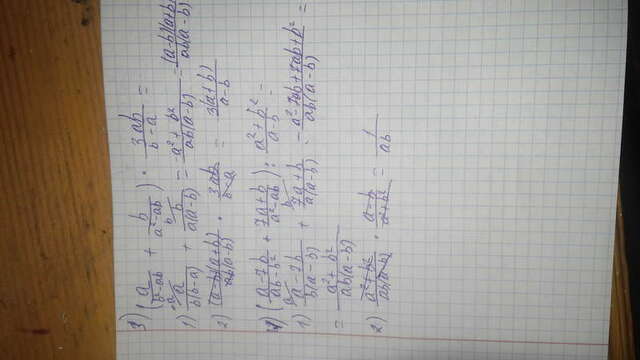 3) (a/(b²-ab) + b/(a²-ab)) · 3ab/(b-a) =
1) a/(b(b-a)) + b/(a(a-b)) = (-a²+b²)/(ab(a-b)) = (a-b)(a+b)/(ab(a-b))
2) (a-b)(a+b)/(ab(a-b)) · 3ab/(b-a) = 3(a+b)/(a-b)
4) ((a-7b)/(ab-b²) + (7a+b)/(a²-ab)) : (a²+b²)/(a-b) =
1) (a-7b)/(b(a-b)) + (7a+b)/(a(a-b)) = (a²-7ab+7ab+b²)/(ab(a-b)) =
= (a²+b²)/(ab(a-b))
2) (a²+b²)/(ab(a-b)) · (a-b)/(a²+b²) = 1/(ab)